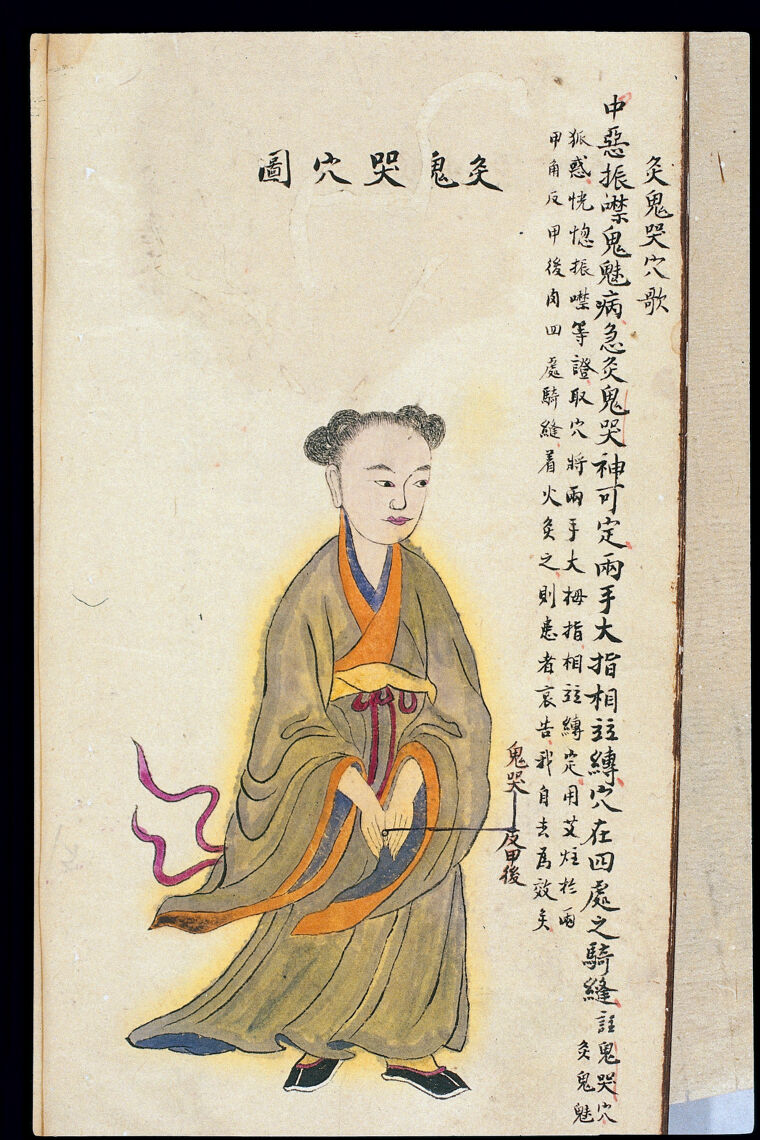 灸鬼哭穴歌
中惡振噤鬼魅病急灸鬼哭神可定兩手大指相並縛穴在四處之騎縫註鬼哭穴灸鬼魅
狐惑恍惚振噤等證取穴將兩手大拇指相並縛定用艾炷於兩
甲角反甲後肉四處騎縫着火灸之則患者哀告我自去為效矣
灸鬼哭穴圖
鬼哭
反甲後